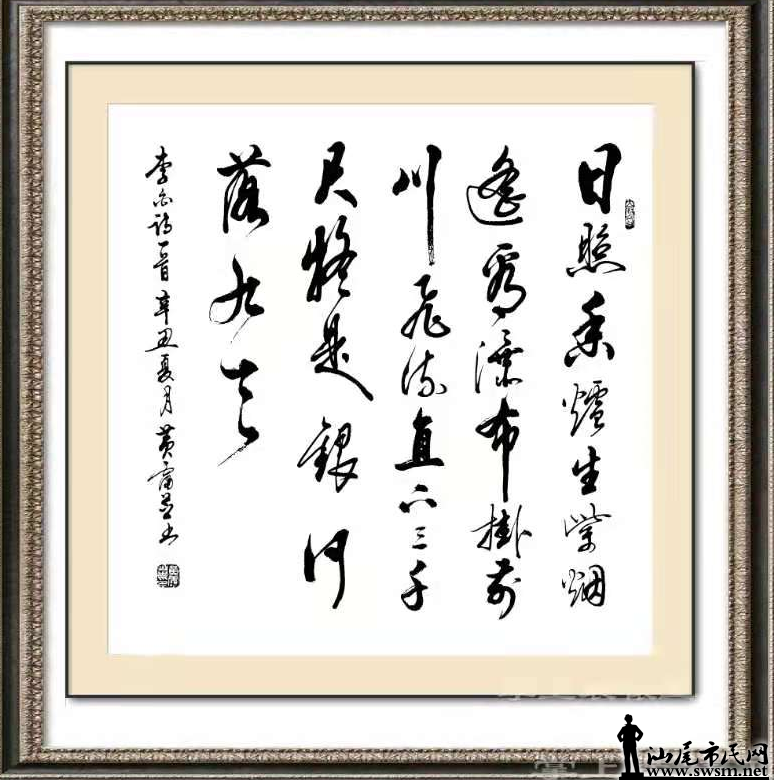 日照香爐生紫烟
遙看瀑布掛前
川飛流直下三千
尺疑是銀河
落九天
李白詩一首辛丑夏月黄富书
汕尾市民网
www.swsm.net